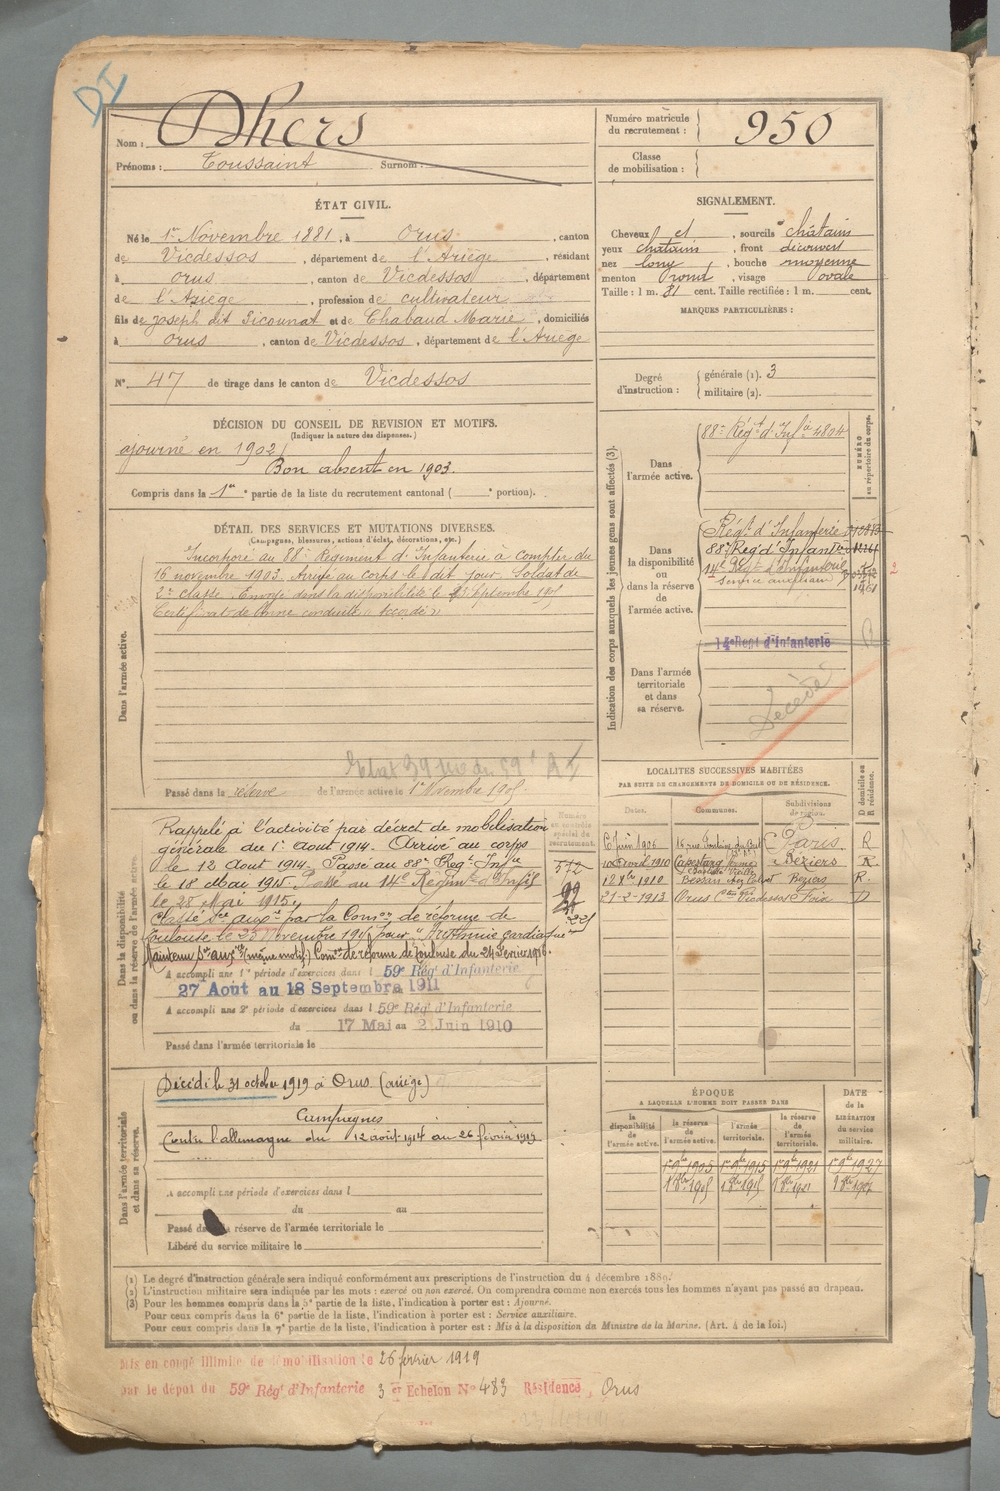 DI
Nom : Dhers
Prénoms : Toussaint Surnom :
Numéro matricule du recrutement : 950
Classe de mobilisation :
ÉTAT CIVIL.
Né le 1er Novembre 1881, à Orus, canton
de Vicdessos, département de l'Ariège, résidant
à Orus, canton de Vicdessos, département
de l'Ariège, profession de cultivateur
fils de Joseph dit Picounat et de Chabaud Marie, domiciliés
à Orus, canton de Vicdessos, département de l'Ariège
N° 47 de tirage dans le canton de Vicdessos
SIGNALEMENT.
Cheveux et , sourcils châtains
yeux chatains , front découvert
nez long , bouche moyenne
menton rond , visage ovale
Taille : 1 m. 81 cent. Taille rectifiée : 1 m. cent.
MARQUES PARTICULIÈRES :
Degré d'instruction : générale (1). 3
militaire (2).
DÉCISION DU CONSEIL DE REVISION ET MOTIFS.
(Indiquer la nature des dispenses.)
ajourné en 1902
Bon absent en 1903.
Compris dans la 1re partie de la liste du recrutement cantonal ( e portion).
DÉTAIL DES SERVICES ET MUTATIONS DIVERSES.
(Campagnes, blessures, actions d'éclat, décorations, etc.)
Dans l'armée active.
Incorporé au 88e Régiment d'Infanterie à compter du
16 novembre 1903. Arrivé au corps le dit jour. Soldat de
2e classe. Envoyé dans la disponibilité le Septembre 1905
Certificat de bonne conduite "Accordé"
Passé dans la réserve de l'armée active le 1er Novembre 1905
Indication des corps auxquels les jeunes gens sont affectés (3).
NUMÉRO au répertoire du corps.
Dans l'armée active.
88e Régt d'Infie 4804
Dans la disponibilité ou dans la réserve de l'armée active.
Régt d'Infanterie
88e Régt d'Infanterie
14e Régt d'Infanterie
service auxiliaire
2
14e Régt d'Infanterie
Dans l'armée territoriale et dans sa réserve.
Décédé
Dans la disponibilité ou dans la réserve de l'armée active.
Rappelé à l'activité par décret de mobilisation
générale du 1er Aout 1914. Arrivé au corps
le 12 Aout 1914. Passé au 88e Régt Infie
le 18 Mai 1915. Passé au 14e Régiment d'Infie
le 28 Mai 1915.
Classé Sce auxre par la Comon de réforme de
Toulouse le 23 Novembre 1915 pour "Arythmie cardiaque"
Maintenu Sce auxre (même motif) Comon de réforme de Toulouse du 24 Février 1916.
A accompli une 1re période d'exercices dans l 59e Régt d'Infanterie
27 Aout au 18 Septembre 1911
A accompli une 2e période d'exercices dans l 59e Régt d'Infanterie
du 17 Mai au 2 Juin 1910
Passé dans l'armée territoriale le
Numéro au contrôle spécial du recrutement.
572
LOCALITÉS SUCCESSIVES HABITÉES
PAR SUITE DE CHANGEMENTS DE DOMICILE OU DE RÉSIDENCE.
D domicile ou R résidence.
Dates. Communes. Subdivisions de région.
6 Juin 1906 Paris R
10 avril 1910 Capestang Béziers R.
1910 Bessan Béziers R.
21-2-1913 Orus Con Vicdessos Foix D
Dans l'armée territoriale et dans sa réserve.
Décédé le 31 octobre 1919 à Orus (Ariège)
Campagnes
Contre l'allemagne du 12 août 1914 au 26 février 1919
A accompli une période d'exercices dans l
du au
Passé dans la réserve de l'armée territoriale le
Libéré du service militaire le
ÉPOQUE
A LAQUELLE L'HOMME DOIT PASSER DANS
DATE de la LIBÉRATION du service militaire.
la disponibilité de l'armée active. la réserve de l'armée active. l'armée territoriale. la réserve de l'armée territoriale.
1er 9bre 1905 1er 9bre 1915 1er 9bre 1921 1er 9bre 1927
(1) Le degré d'instruction générale sera indiqué conformément aux prescriptions de l'instruction du 4 décembre 1889.
(2) L'instruction militaire sera indiquée par les mots : exercé ou non exercé. On comprendra comme non exercés tous les hommes n'ayant pas passé au drapeau.
(3) Pour les hommes compris dans la 5e partie de la liste, l'indication à porter est : Ajourné.
Pour ceux compris dans la 6e partie de la liste, l'indication à porter est : Service auxiliaire.
Pour ceux compris dans la 7e partie de la liste, l'indication à porter est : Mis à la disposition du Ministre de la Marine. (Art. 4 de la loi.)
Mis en congé illimité de démobilisation le 26 février 1919
par le dépôt du 59e Régt d'Infanterie 3 eme Echelon No 483 Résidence, Orus